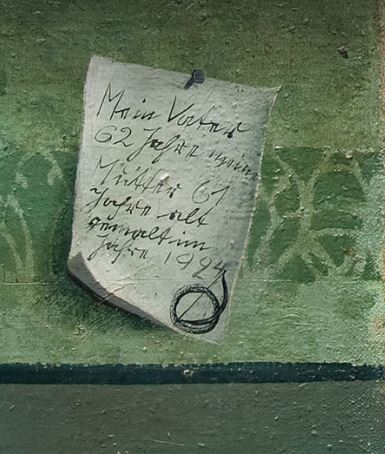 Mein Vater
62 Jahre meine
Mutter 61
Jahre alt
gemalt im
Jahre 1924